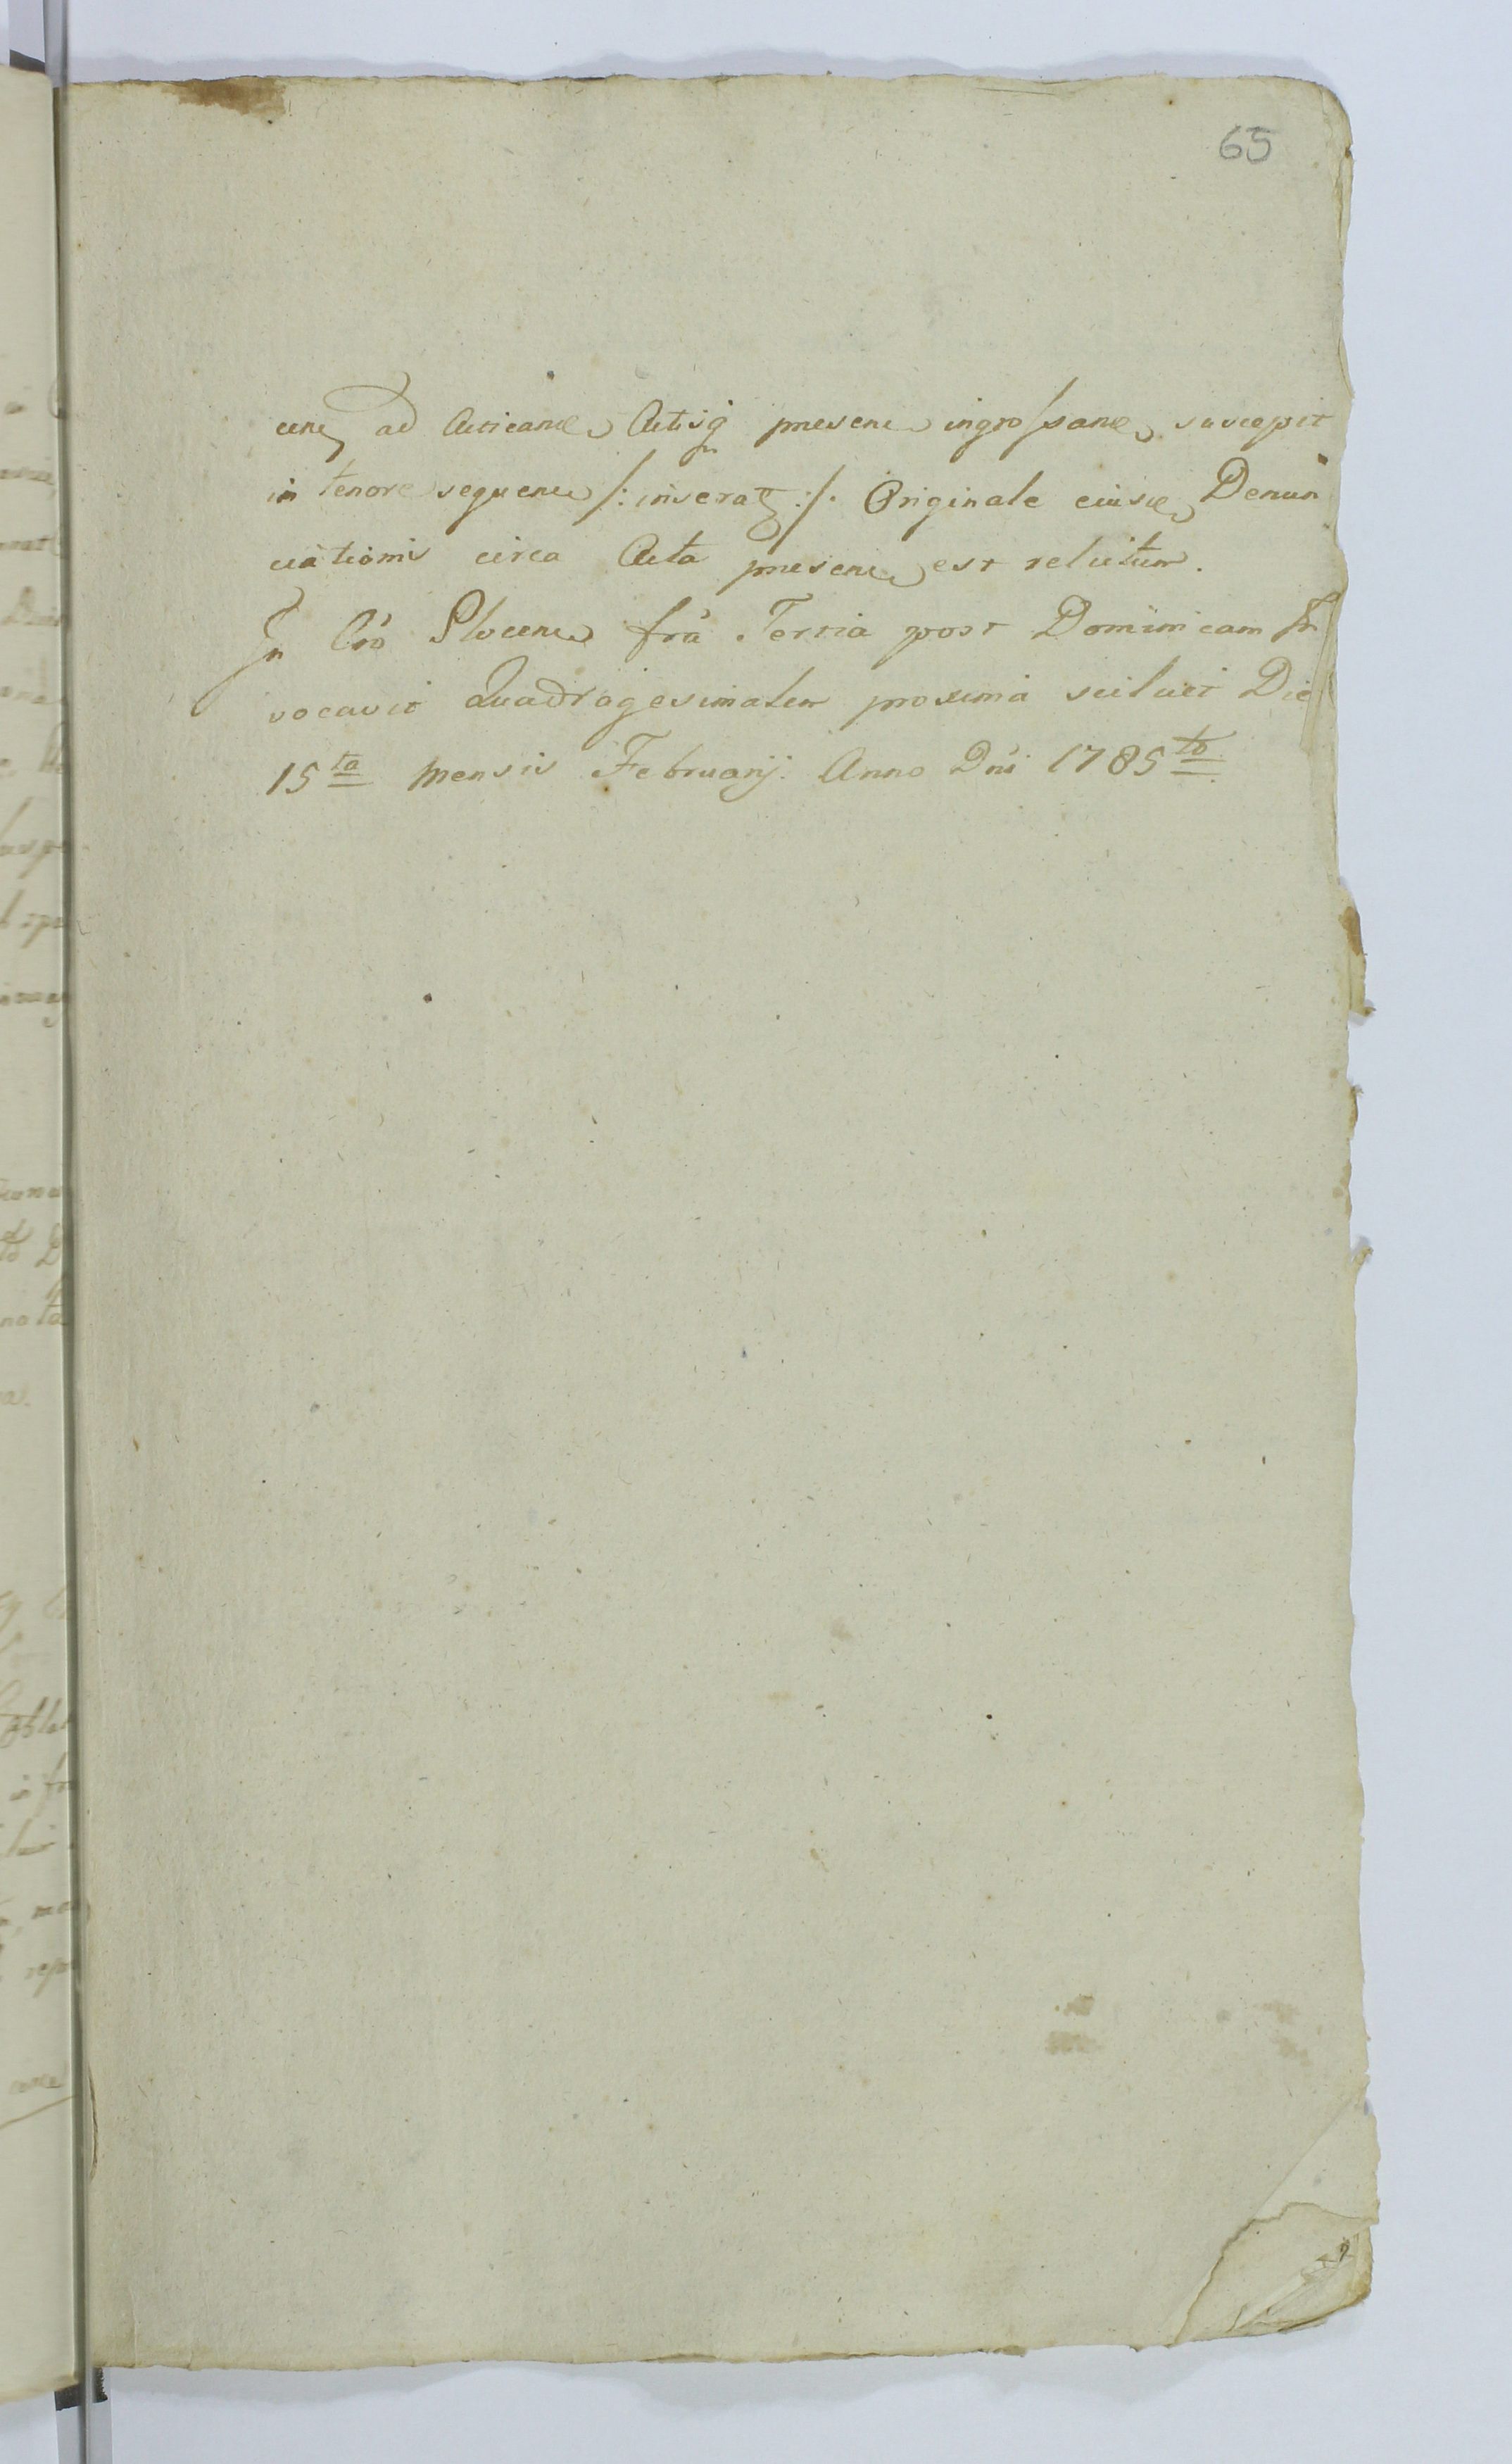 65
cen ad Acticand Actisq presen ingrossand suscepit
in tenore sequen /: inseratr :/. Originale eiusd Denun
ciationis circa Acta presen est relictum.
In Cro Plocen fra Tertia post Dominicam In
vocavit Quadragesimalem proxima scilicet Die
15ta Mensis Februarij Anno Dni 1785to